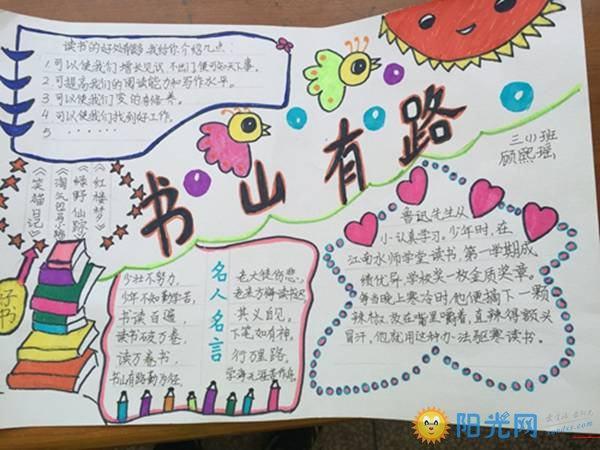 读书的好处有很多,我给你介绍几点:
1.可以使我们增长见识,不出门便可知天下事。
2.可提高我们的阅读能力和写作水平。
3.可以使我们变的有修养。
4.可以使我们找到好工作。
5 ······
书山有路
三小班
顾熙瑶
《红楼梦》
《绿野仙踪》
《淘气包马小跳》
《笑猫日记》
好书
名人名言
少壮不努力,老大徒伤悲。
少年不知勤学苦,老来方悔读书迟
书读百遍,其义自见。
读书破万卷,下笔如有神。
读万卷书,行万里路。
书山有路勤为径,学海无涯苦作舟。
鲁迅先生从
小认真学习。少年时,在
江南水师学堂读书,第一学期成
绩优异,学校奖一枚金质奖章。
每当晚上寒冷时,他便摘下一颗
辣椒,放在嘴里嚼着,直辣得额头
冒汗。他就用这种办法驱寒读书。
阳光网